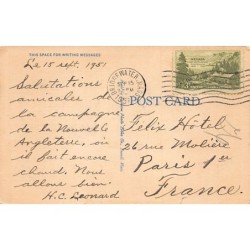 THIS SPACE FOR WRITING MESSAGES
Le 15 sept. 1951
Salutations
amicales de
la campagne
de la Nouvelle
Angleterre, où il
fait encore
chaud. Nous
allons bien.
H.C. Leonard
BRIDGEWATER
POST CARD
Félix Hôtel
26 rue Molière
Paris 1er
France